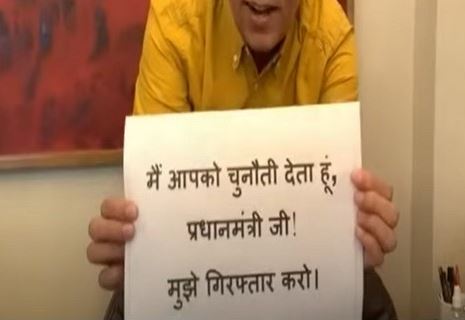 मैं आपको चुनौती देता हूं,
प्रधानमंत्री जी!
मुझे गिरफ्तार करो।